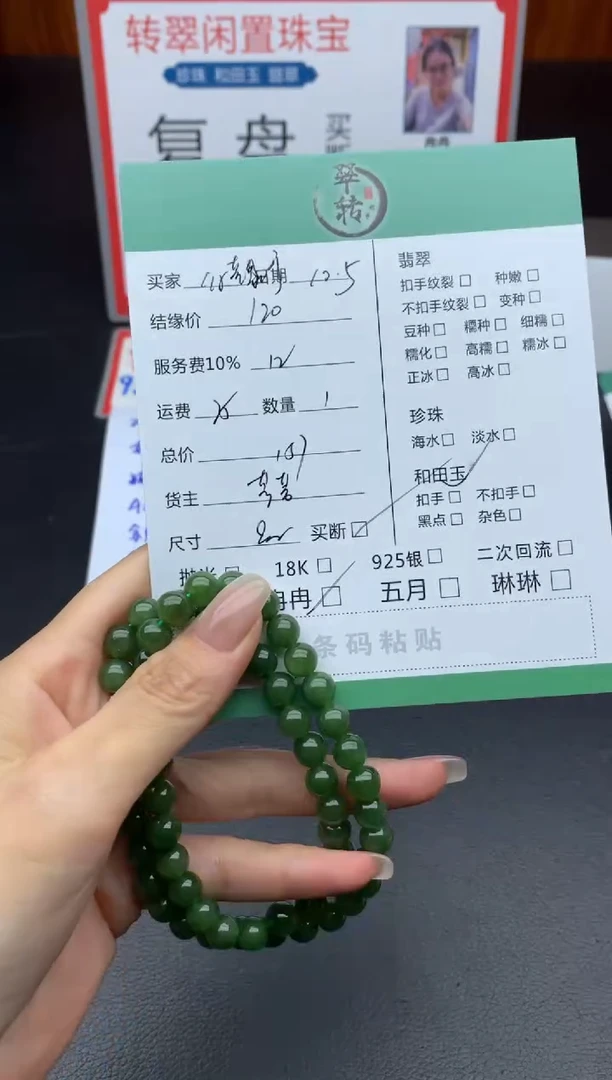 转翠闲置珠宝
珍珠 和田玉 翡翠
复盘 买
翠转
买家 期 12.5
结缘价 120
服务费10% 12
运费 数量 1
总价
货主
尺寸 买断
抛光 18K 925银 二次回流
冉冉 五月 琳琳
条码粘贴
翡翠
扣手纹裂 种嫩
不扣手纹裂 变种
豆种 糯种 细糯
糯化 高糯 糯冰
正冰 高冰
珍珠
海水 淡水
和田玉
扣手 不扣手
黑点 杂色